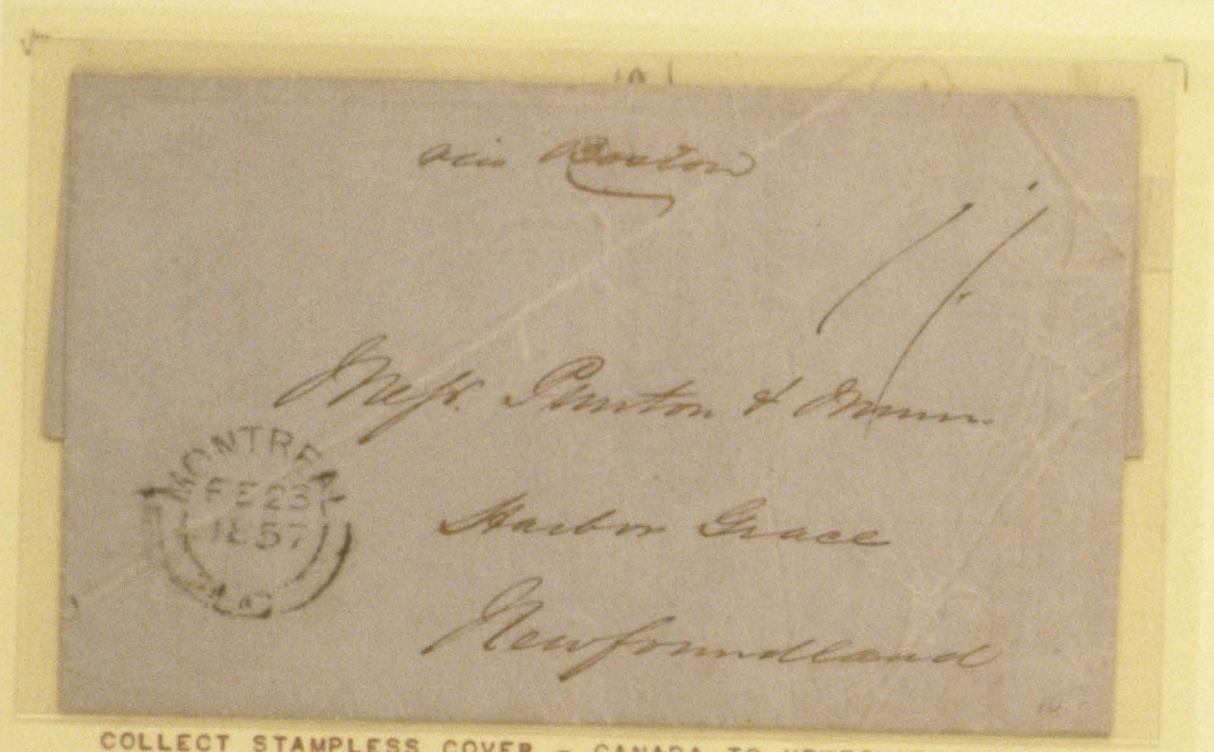 via Boston
11
Mess. Punton & Munn
Harbor Grace
Newfoundland
MONTREAL
FE 23
1857
COLLECT STAMPLESS COVER - CANADA TO